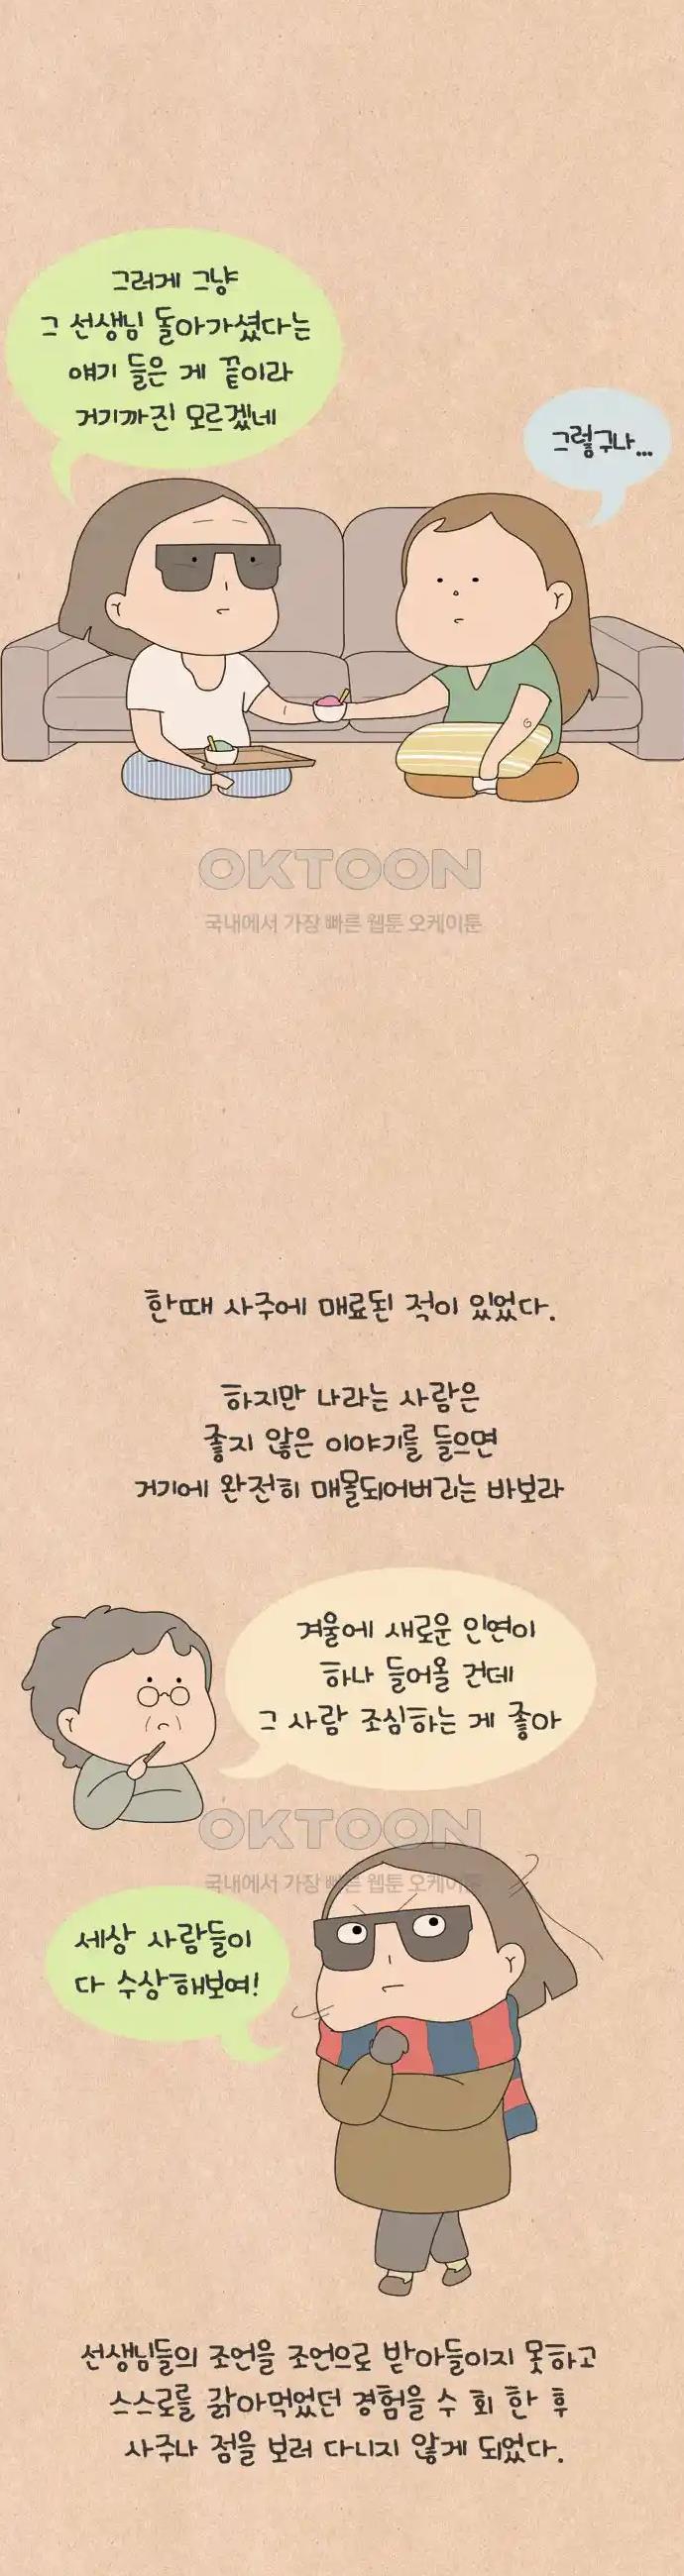 그러게 그냥
그 선생님 돌아가셨다는
얘기 들은 게 끝이라
거기까진 모르겠네
그렇구나...
OKTOON
국내에서 가장 빠른 웹툰 오케이툰
한때 사주에 매료된 적이 있었다.
하지만 나라는 사람은
좋지 않은 이야기를 들으면
거기에 완전히 매몰되어버리는 바보라
겨울에 새로운 인연이
하나 들어올 건데
그 사람 조심하는 게 좋아
OKTOON
국내에서 가장 빠른 웹툰 오케이툰
세상 사람들이
다 수상해보여!
선생님들의 조언을 조언으로 받아들이지 못하고
스스로를 갉아먹었던 경험을 수 회 한 후
사주나 점을 보러 다니지 않게 되었다.